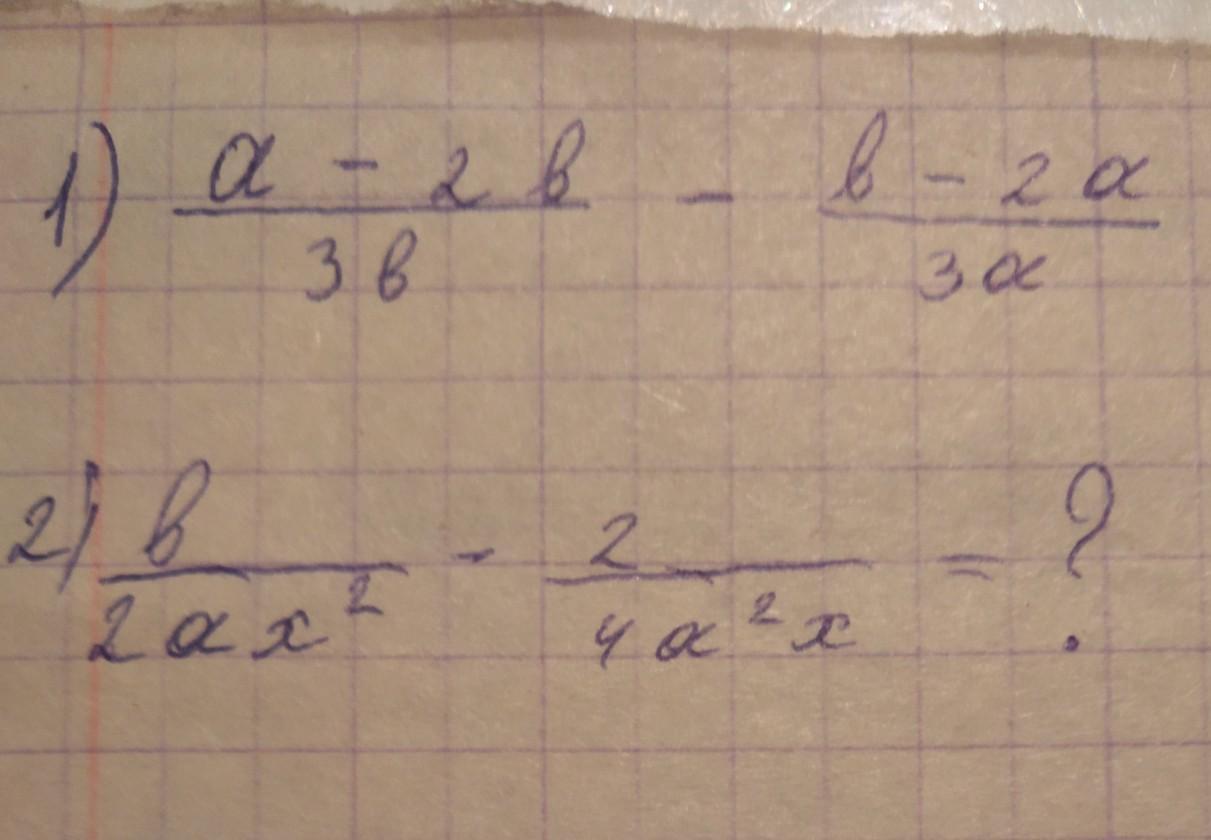 1) (a - 2b)/(3b) - (b - 2a)/(3a)
2) b/(2ax²) - 2/(4a²x) = ?